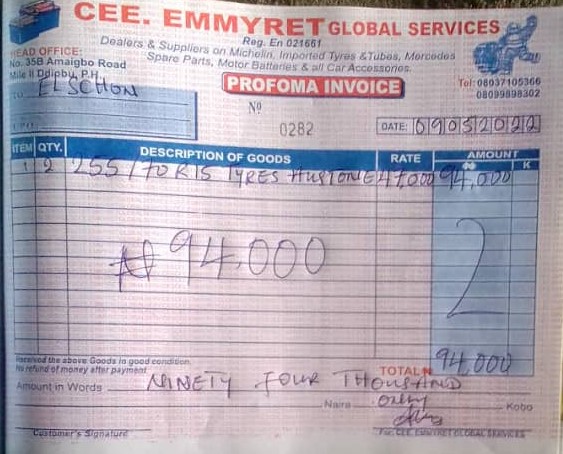 CEE. EMMYRET GLOBAL SERVICES
Reg. En 021661
Dealers & Suppliers on Michelin, Imported Tyres & Tubes, Mercedes
Spare Parts, Motor Batteries & all Car Accessories.
HEAD OFFICE:
No. 35B Amaigbo Road
Mile II Ddiobu, P.H.
Tel: 08037105366
08099898302
PROFOMA INVOICE
ELSCHON
Nº
0282
DATE: 09052022
ITEM QTY. DESCRIPTION OF GOODS RATE AMOUNT
₦ K
1 2 255/70R15 TYRES 47,000 94,000
₦94,000
Received the above Goods in good condition
No refund of money after payment
TOTAL ₦ 94,000
Amount in Words NINETY FOUR THOUSAND
Naira Only Kobo
Customer's Signature
For: CEE. EMMYRET GLOBAL SERVICES